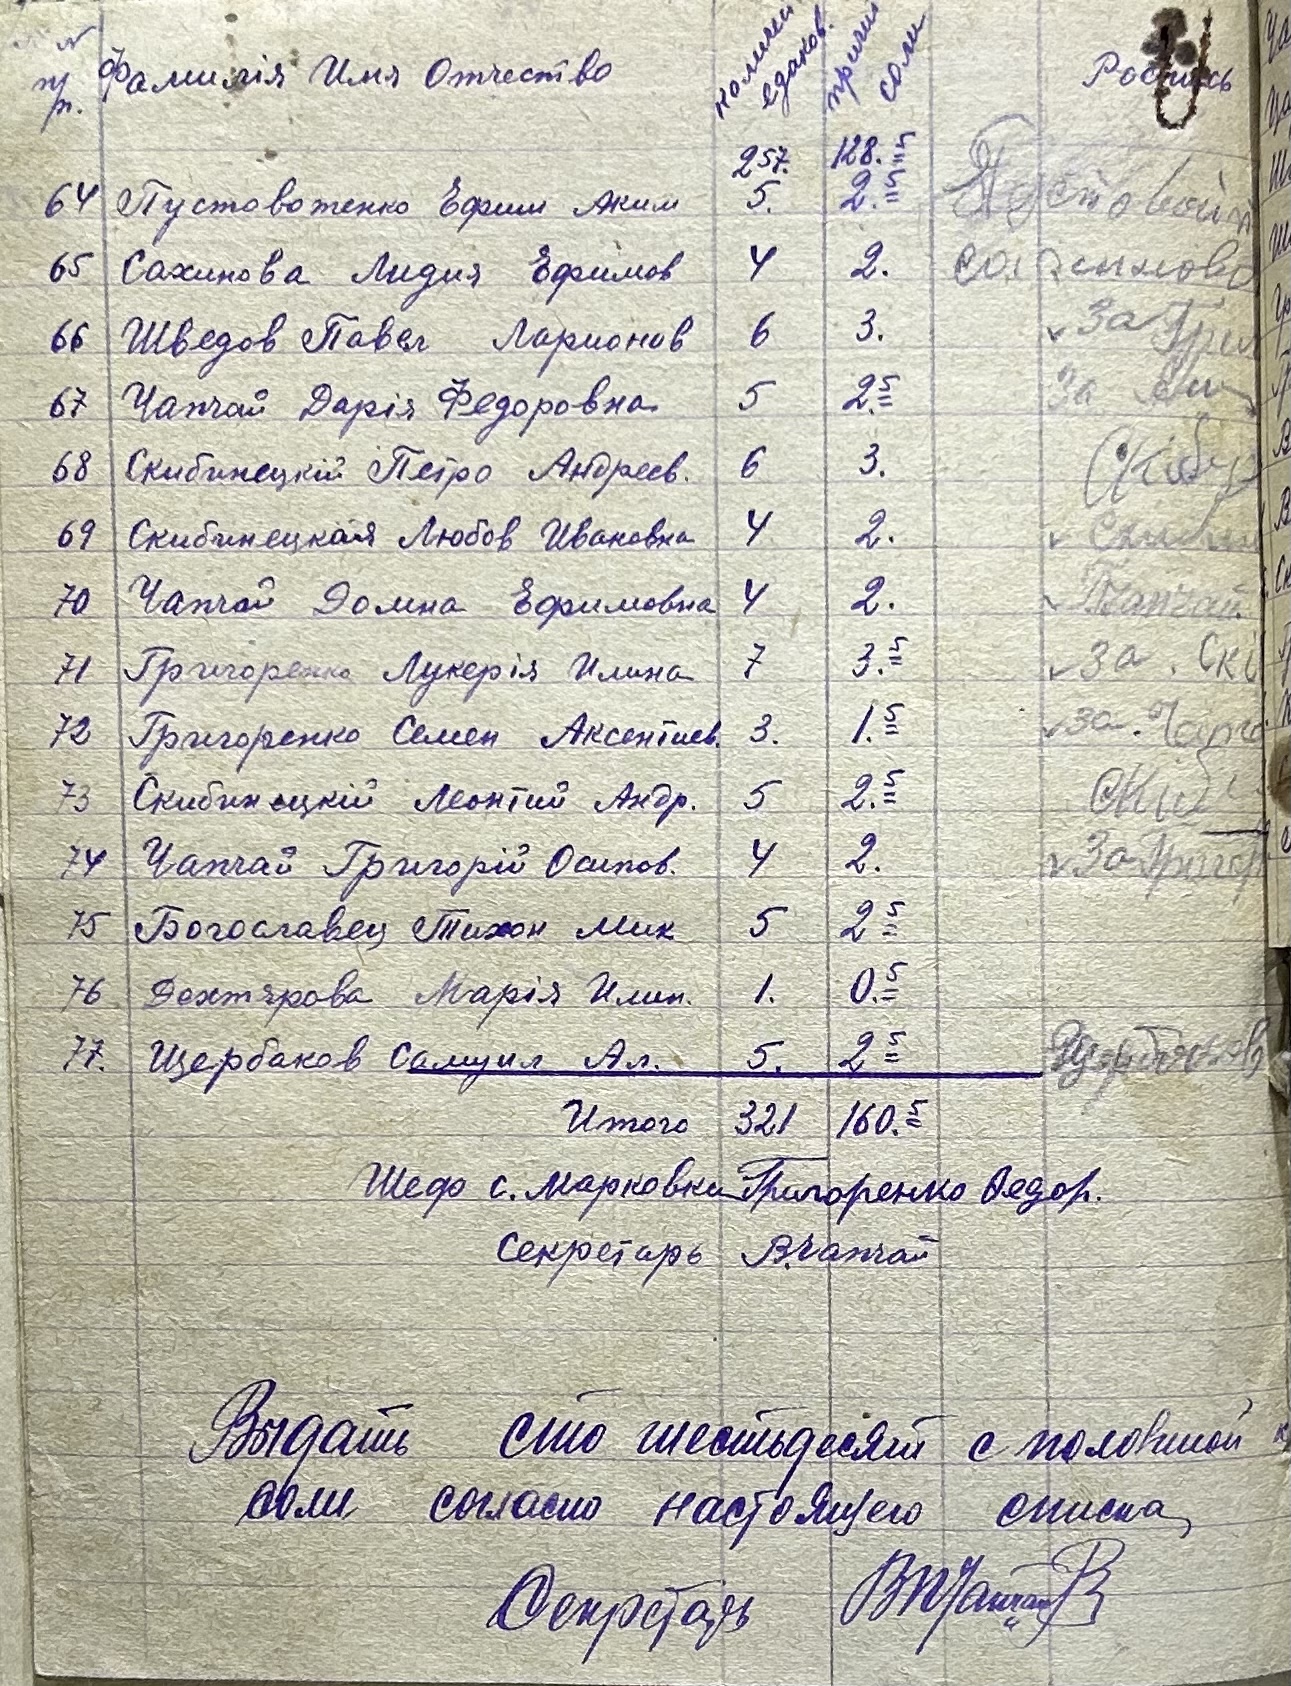 № п/п. Фамилія Имя Отчество колич. едаков. причит соли Роспись
257. 128.5
64 Пустовотенко Ефим Аким 5. 2.5
65 Сахинова Лидия Ефимов 4 2.
66 Шведов Павел Ларионов 6 3. За Григ
67 Чапчай Дарія Федоровна 5 2.5 За
68 Скибинецкій Петро Андреев. 6 3. Скиб
69 Скибинецкая Любов Ивановна 4 2. Скиби
70 Чапчай Домна Ефимовна 4 2. Чапчай
71 Григоренко Лукерія Илина 7 3.5 За. Скі
72 Григоренко Семен Аксентиев. 3. 1.5 За. Чапч
73 Скибинецкій Леонтий Андр. 5 2.5 Скіб
74 Чапчай Григорій Осипов. 4 2. За Григор
75 Богославец Тихон Мик 5 2 5
76 Дехтярова Марія Илин. 1. 0.5
77. Щербаков Самуил Ал. 5. 2 5 Щербаков
Итого 321 160.5
Шеф с. Марковки Григоренко Федор.
Секретарь В.Чапчай
Выдать сто шестьдесят с половиной к
соли согласно настоящего списка
Секретарь ВПЧапчай